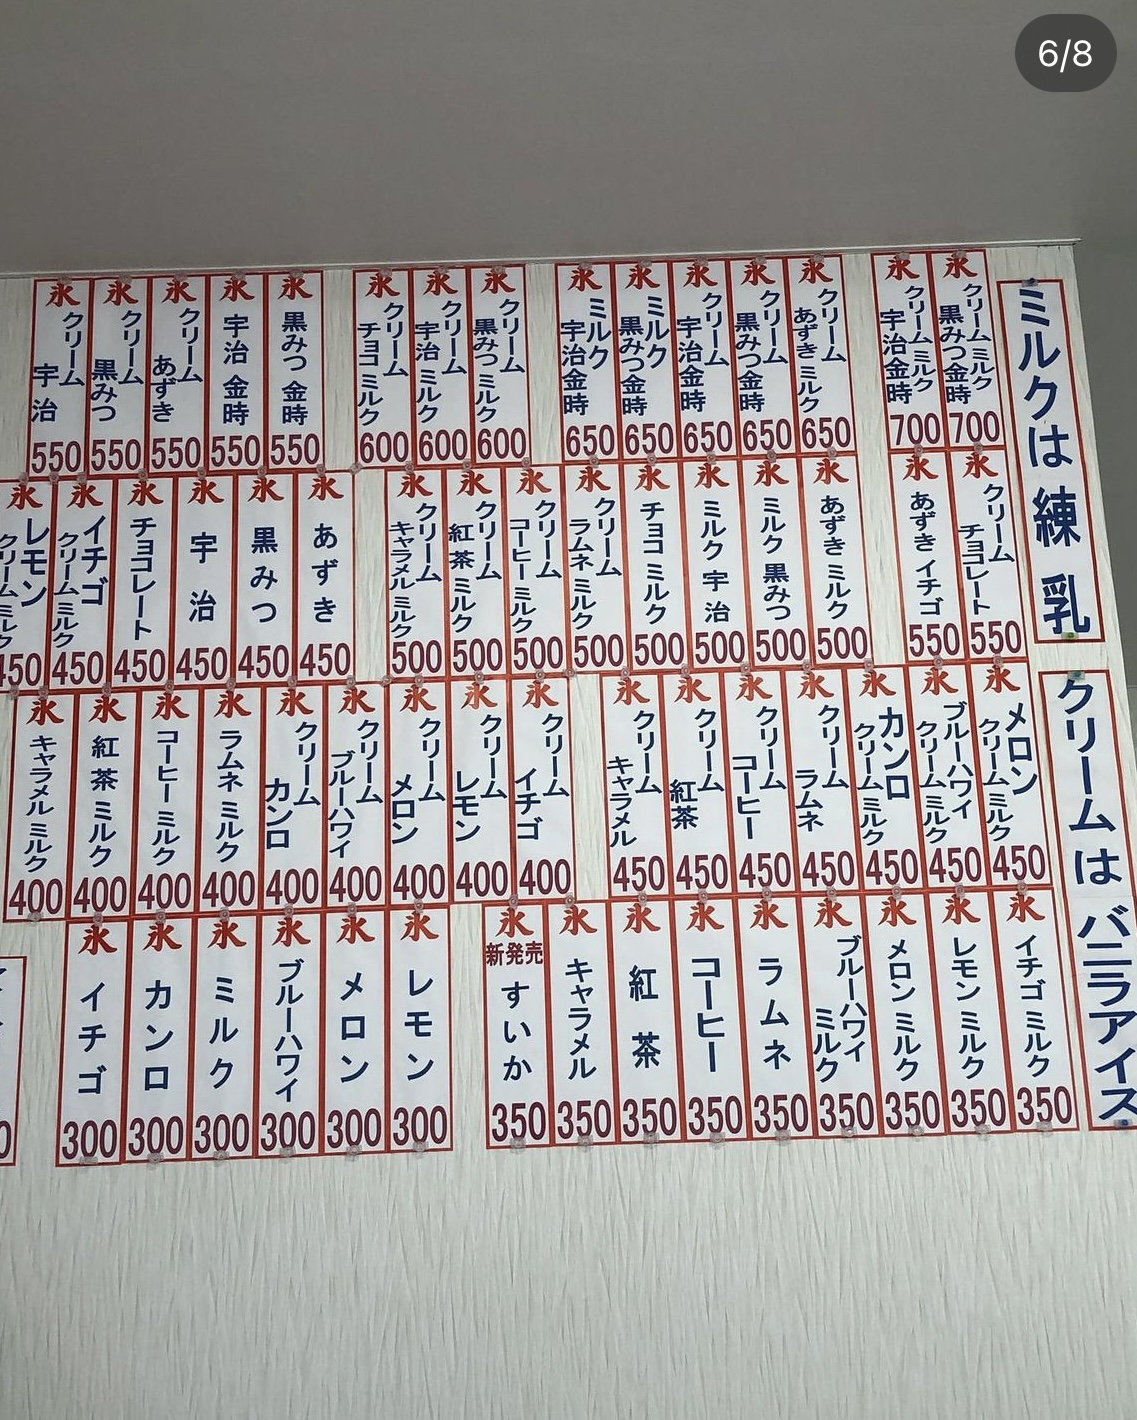 6/8
ミルクは 練 乳
クリームは バニラアイス
氷 クリームミルク 黒みつ金時 700
氷 クリームミルク 宇治金時 700
氷 クリーム あずき ミルク 650
氷 クリーム 黒みつ金時 650
氷 クリーム 宇治金時 650
氷 ミルク 黒みつ金時 650
氷 ミルク 宇治金時 650
氷 クリーム 黒みつ ミルク 600
氷 クリーム 宇治 ミルク 600
氷 クリーム チョコ ミルク 600
氷 黒みつ 金時 550
氷 宇治 金時 550
氷 クリーム あずき 550
氷 クリーム 黒みつ 550
氷 クリーム 宇治 550
氷 クリーム チョコレート 550
氷 あずき イチゴ 550
氷 あずき ミルク 500
氷 ミルク 黒みつ 500
氷 ミルク 宇治 500
氷 チョコ ミルク 500
氷 クリーム ラムネ ミルク 500
氷 クリーム コーヒー ミルク 500
氷 クリーム 紅茶 ミルク 500
氷 クリーム キャラメル ミルク 500
氷 あずき 450
氷 黒みつ 450
氷 宇治 450
氷 チョコレート 450
氷 イチゴ クリーム ミルク 450
氷 レモン クリーム ミルク 450
氷 メロン クリーム ミルク 450
氷 ブルーハワイ クリーム ミルク 450
氷 カンロ クリーム ミルク 450
氷 クリーム ラムネ 450
氷 クリーム コーヒー 450
氷 クリーム 紅茶 450
氷 クリーム キャラメル 450
氷 クリーム イチゴ 400
氷 クリーム レモン 400
氷 クリーム メロン 400
氷 クリーム ブルーハワイ 400
氷 クリーム カンロ 400
氷 ラムネ ミルク 400
氷 コーヒー ミルク 400
氷 紅茶 ミルク 400
氷 キャラメル ミルク 400
氷 イチゴ ミルク 350
氷 レモン ミルク 350
氷 メロン ミルク 350
氷 ブルーハワイ ミルク 350
氷 ラムネ 350
氷 コーヒー 350
氷 紅茶 350
氷 キャラメル 350
氷 新発売 すいか 350
氷 レモン 300
氷 メロン 300
氷 ブルーハワイ 300
氷 ミルク 300
氷 カンロ 300
氷 イチゴ 300